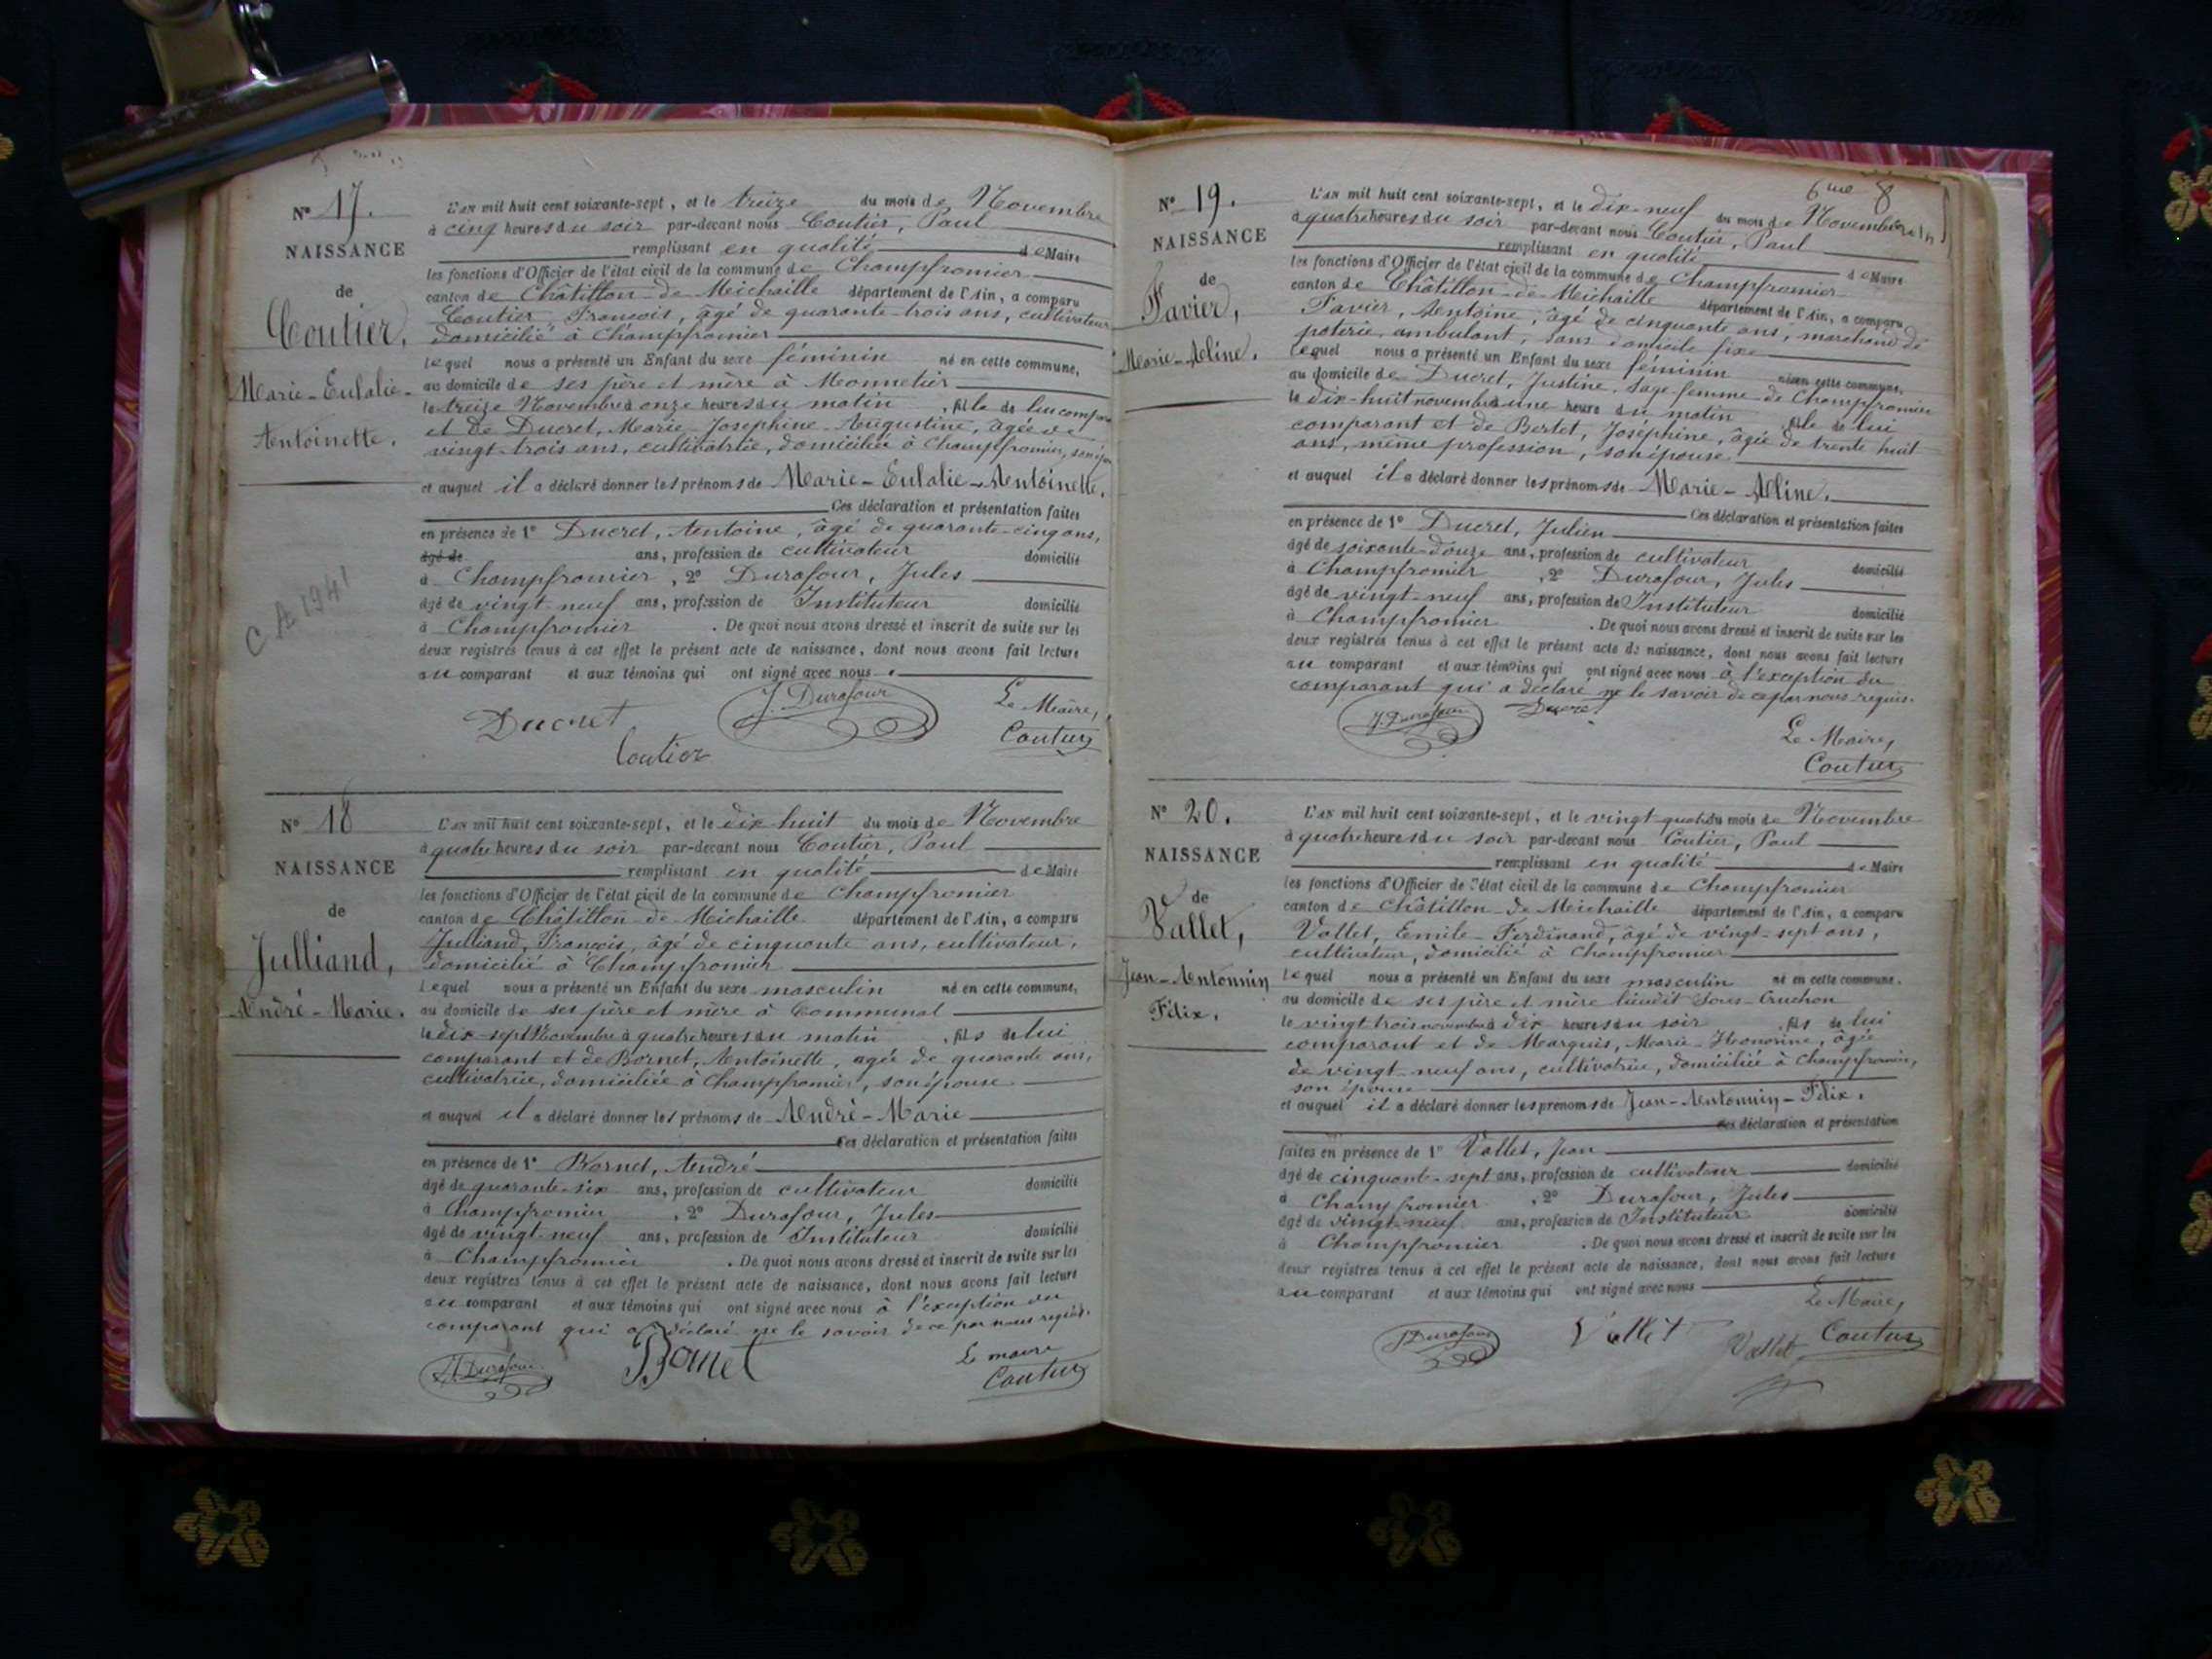 N° 17.
NAISSANCE
de
Coutier,
Marie-Eulalie-
Antoinette.
C A 1941
L'AN mil huit cent soixante-sept, et le treize du mois de Novembre
à cinq heures du soir par-devant nous Coutier, Paul
remplissant en qualité de Maire
les fonctions d'Officier de l'état civil de la commune de Champfromier
canton de Châtillon-de-Michaille département de l'Ain, a comparu
Coutier François, âgé de quarante-trois ans, cultivateur
domicilié à Champfromier
lequel nous a présenté un Enfant du sexe féminin né en cette commune,
au domicile de ses père et mère à Monnetier
le treize Novembre à onze heures du matin, fille de lui comparant
et de Ducret, Marie-Joséphine-Augustine, âgée de
vingt-trois ans, cultivatrice, domiciliée à Champfromier, son
et auquel il a déclaré donner les prénoms de Marie-Eulalie-Antoinette.
Ces déclaration et présentation faites
en présence de 1° Ducret, Antoine, âgé de quarante-cinq ans,
âgé de ans, profession de cultivateur domicilié
à Champfromier, 2° Durafour, Jules
âgé de vingt-neuf ans, profession de Instituteur domicilié
à Champfromier. De quoi nous avons dressé et inscrit de suite sur les
deux registres tenus à cet effet le présent acte de naissance, dont nous avons fait lecture
au comparant et aux témoins qui ont signé avec nous.
Ducret J. Durafour Le Maire,
Coutier Coutier
N° 18
NAISSANCE
de
Julliand,
André-Marie.
L'AN mil huit cent soixante-sept, et le dix-huit du mois de Novembre
à quatre heures du soir par-devant nous Coutier, Paul
remplissant en qualité de Maire
les fonctions d'Officier de l'état civil de la commune de Champfromier
canton de Châtillon-de-Michaille département de l'Ain, a comparu
Julliand, François, âgé de cinquante ans, cultivateur,
domicilié à Champfromier
lequel nous a présenté un Enfant du sexe masculin né en cette commune,
au domicile de ses père et mère à Communal
le dix-sept Novembre à quatre heures du matin, fils de lui
comparant et de Bornet, Antoinette, agée de quarante ans,
cultivatrice, domiciliée à Champfromier, son épouse
et auquel il a déclaré donner les prénoms de André-Marie
Ces déclaration et présentation faites
en présence de 1° Bornet, André
âgé de quarante-six ans, profession de cultivateur domicilié
à Champfromier, 2° Durafour, Jules
âgé de vingt-neuf ans, profession de Instituteur domicilié
à Champfromier. De quoi nous avons dressé et inscrit de suite sur les
deux registres tenus à cet effet le présent acte de naissance, dont nous avons fait lecture
au comparant et aux témoins qui ont signé avec nous à l'exception du
comparant qui a déclaré ne le savoir de ce par nous requis.
J. Durafour Bornet Le maire
Coutier
6me 8
N° 19.
NAISSANCE
de
Favier,
Marie-Aline.
L'AN mil huit cent soixante-sept, et le dix-neuf du mois de Novembre
à quatre heures du soir par-devant nous Coutier, Paul
remplissant en qualité de Maire
les fonctions d'Officier de l'état civil de la commune de Champfromier
canton de Châtillon-de-Michaille département de l'Ain, a comparu
Favier, Antoine, âgé de cinquante ans, marchand de
poterie ambulant, sans domicile fixe
lequel nous a présenté un Enfant du sexe féminin né en cette commune,
au domicile de Ducret, Justine, sage femme de Champfromier
le dix-huit novembre à une heure du matin fille de lui
comparant et de Bertet, Joséphine, âgée de trente huit
ans, même profession, son épouse
et auquel il a déclaré donner les prénoms de Marie-Aline.
Ces déclaration et présentation faites
en présence de 1° Ducret, Julien
âgé de soixante-douze ans, profession de cultivateur domicilié
à Champfromier, 2° Durafour, Jules
âgé de vingt-neuf ans, profession de Instituteur domicilié
à Champfromier. De quoi nous avons dressé et inscrit de suite sur les
deux registres tenus à cet effet le présent acte de naissance, dont nous avons fait lecture
au comparant et aux témoins qui ont signé avec nous à l'exception du
comparant qui a déclaré ne le savoir de ce par nous requis.
J. Durafour Ducret Le Maire,
Coutier
N° 20.
NAISSANCE
de
Vallet,
Jean-Antonnin
Félix.
L'AN mil huit cent soixante-sept, et le vingt-quatre du mois de Novembre
à quatre heures du soir par-devant nous Coutier, Paul
remplissant en qualité de Maire
les fonctions d'Officier de l'état civil de la commune de Champfromier
canton de Châtillon-de-Michaille département de l'Ain, a comparu
Vallet, Emile-Ferdinand, âgé de vingt-sept ans,
cultivateur, domicilié à Champfromier
lequel nous a présenté un Enfant du sexe masculin né en cette commune,
au domicile de ses père et mère lieudit Sous-Cruchon
le vingt trois novembre à dix heures du soir, fils de lui
comparant et de Marquis, Marie-Honorine, âgée
de vingt-neuf ans, cultivatrice, domiciliée à Champfromier,
son épouse
et auquel il a déclaré donner les prénoms de Jean-Antonnin-Félix.
Ces déclaration et présentation
faites en présence de 1° Vallet, Jean
âgé de cinquante-sept ans, profession de cultivateur domicilié
à Champfromier, 2° Durafour, Jules
âgé de vingt-neuf ans, profession de Instituteur domicilié
à Champfromier. De quoi nous avons dressé et inscrit de suite sur les
deux registres tenus à cet effet le présent acte de naissance, dont nous avons fait lecture
au comparant et aux témoins qui ont signé avec nous
Le Maire,
J Durafour Vallet Vallet Coutier